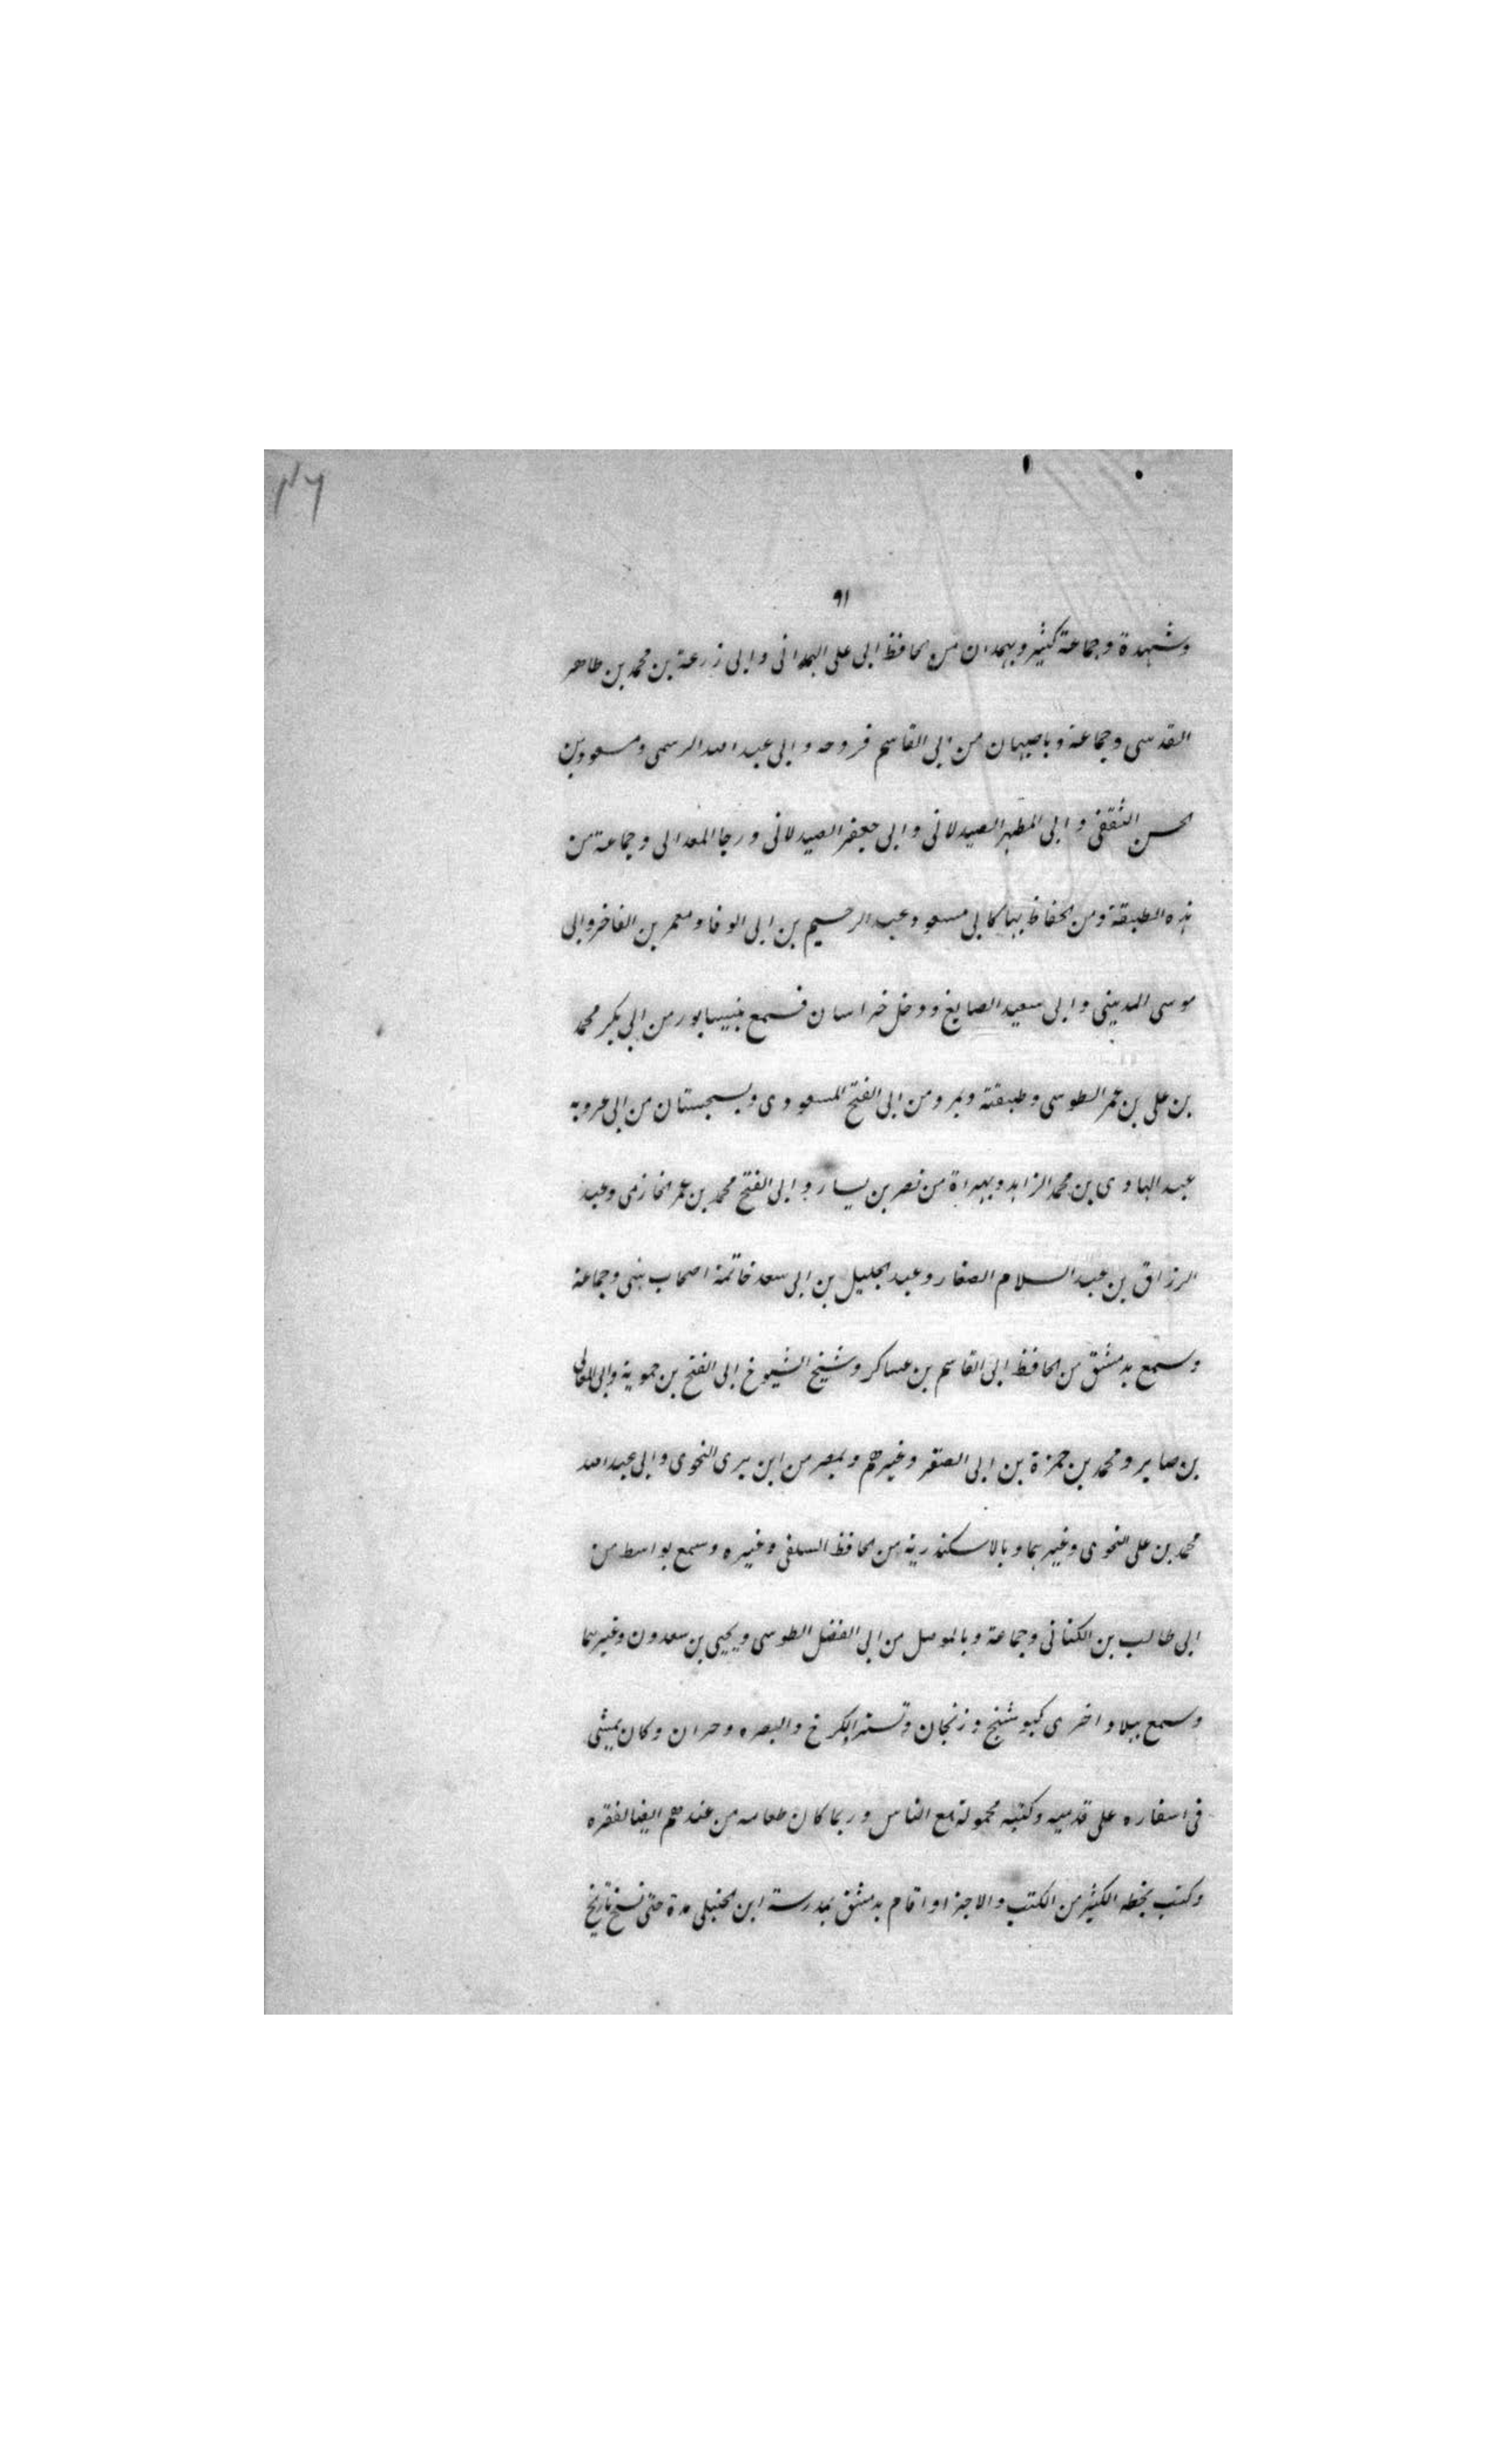 ٩١
وشهدة وجماعة كثير وبهمدان من الحافظ ابى على الهمدانى وابى زرعة بن محمد بن طاهر
القدسى وجماعة وباصبهان من ابى القاسم فروحه وابى عبد الله الرسمى ومسعود بن
الحسن الثقفى و ابى المطهر الصيدلانى وابى جعفر الصيدلانى ورجا المعدالى وجماعة من
هذه الطبقة ومن الحفاظ بها كابى مسعود عبد الرحيم بن ابى الوفا ومعمر بن الفاخر وابى
موسى المدينى وابى سعيد الصايغ ودخل خراسان فسمع بنيسابور من ابى بكر محمد
بن على بن عمر الطوسى وطبقتة وبمرو من ابى الفتح المسعودى وبسجستان من ابى عروبه
عبد الهادى بن محمد الزاهد وبهراة من نصر بن يسار و ابى الفتح محمد بن عمر الحازمى وعبد
الرزاق بن عبد السلام الصفار وعبد الجليل بن ابى سعد خاتمة اصحاب بنبى وجماعة
وسمع بدمشق من الحافظ ابى القاسم بن عساكر وشيخ الشيوخ ابى الفتح بن حمويه وابى المعالى
بن صابر ومحمد بن حمزة بن ابى الصقر وغيرهم وبمصر من ابن برى النحوى وابى عبد الله
محمد بن على النحوى وغيرهما وبالاسكندرية من الحافظ السلفى وغيره وسمع بواسط من
ابى طالب بن الكنانى وجماعة وبالموصل من ابى الفضل الطوسى ويحيى بن سعدون وغيرهما
وسمع ببلاد اخرى كبوشنج وزنجان وتستر الكرخ والبصره وحران وكان يمشى
فى اسفاره على قدميه وكتبه محمولة مع الناس وربما كان طعامه من عندهم ايضا لفقره
وكتب بخطه الكثير من الكتب والاجزا واقام بدمشق بمدرسة ابن الحنبلى مدة حتى نسخ تاريخ